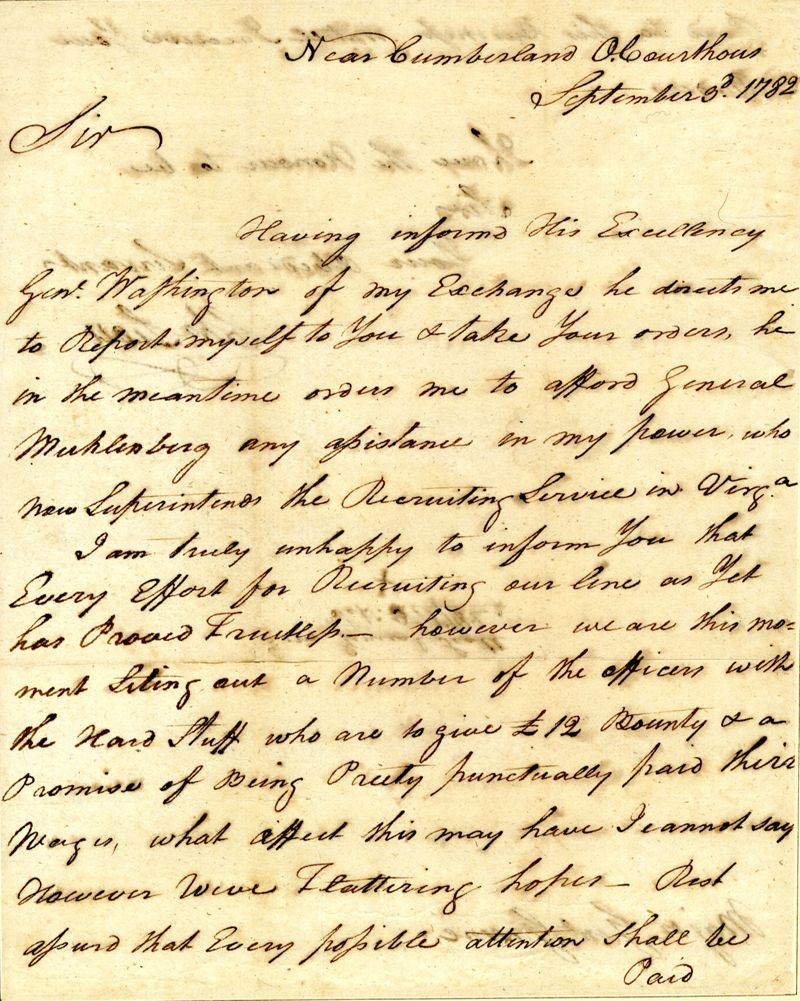 Near Cumberland O. Courthous
September 3d. 1782
Sir
Having informd His Excellency
Genl. Washington of my Exchange he directs me
to Report myself to You & take Your orders, he
in the meantime orders me to afford General
Mechlenberg any assistance in my power, who
now Superintends the Recruiting Service in Virga
I am truly unhappy to inform You that
Every Effort for Recruiting our line as Yet
has Proved Fruitless — however we are this mo=
ment Seting out a Number of the officers with
the Hard Stuff who are to give £12 Bounty & a
Promise of Being Preety punctually paid their
Wages, what effect this may have I cannot say
However Weve Flattering hopes — Rest
assurd that Every possible attention Shall be
Paid